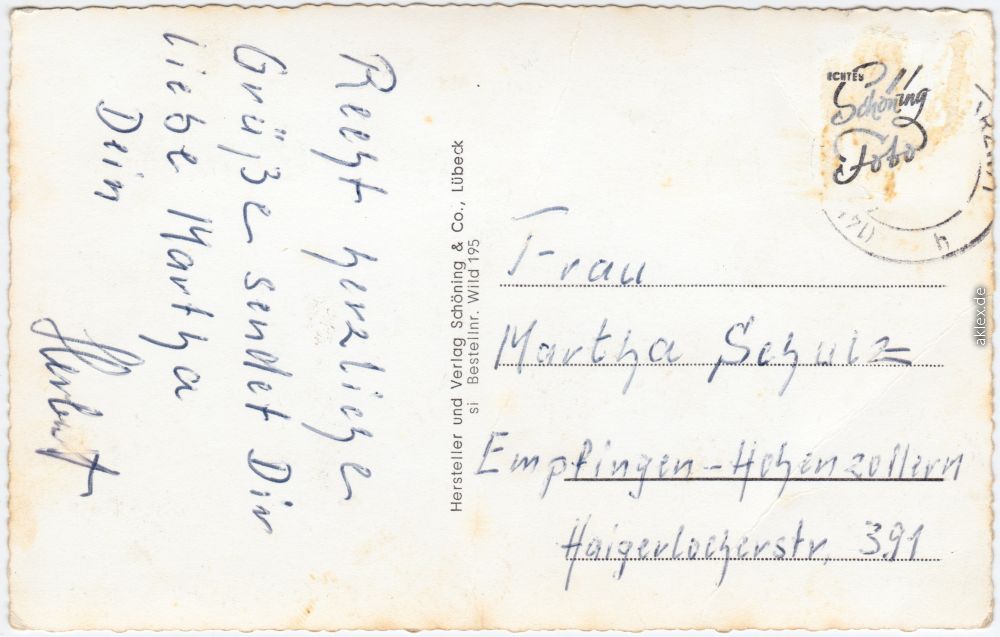 Recht herzliche
Grüße sendet Dir
liebe Martha
Dein
Herbert
Hersteller und Verlag Schöning & Co., Lübeck
si Bestellnr. Wild 195
ECHTES
Schöning
Foto
Frau
Martha Schulz
Empfingen-Hohenzollern
Haigerlocherstr. 391
h
aklex.de